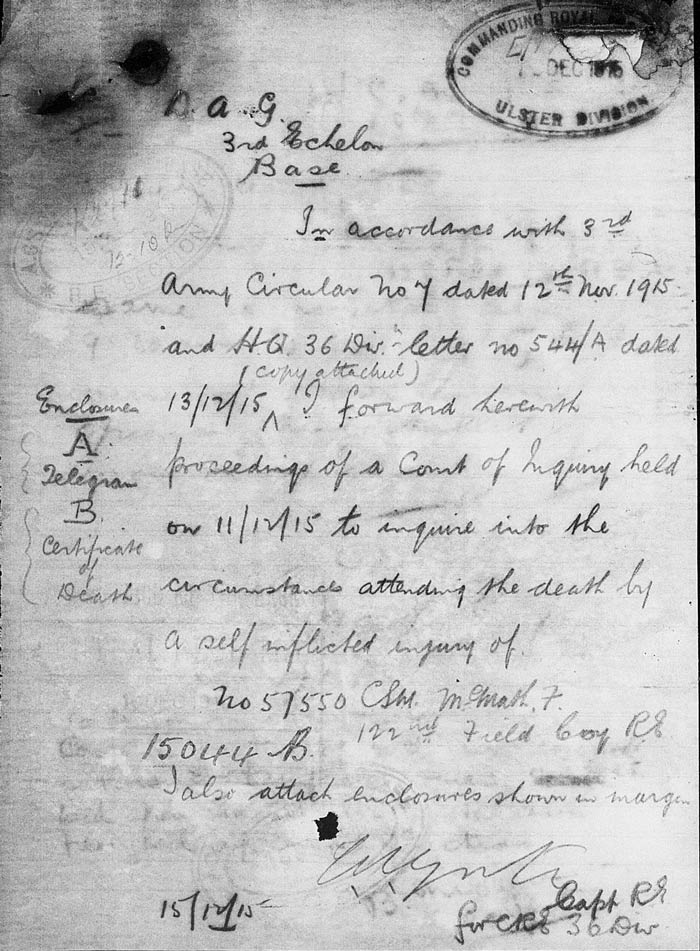 COMMANDING ROYAL
DEC 1915
ULSTER DIVISION
D. A. G.
3rd Echelon
Base
In accordance with 3rd
Army Circular No 7 dated 12th Nov. 1915
and H.Q. 36 Div. letter no 544/A dated
(copy attached)
13/12/15 ^ I forward herewith
proceedings of a Court of Inquiry held
on 11/12/15 to inquire into the
circumstances attending the death by
a self inflicted injury of
No 57550 CSM. McMath, F.
122nd Field Coy RE
15044 B.
I also attach enclosures shown in margin
Enclosures
A
Telegram
B.
Certificate
of
Death
Capt RE
for CRE 36 Div
15/12/15